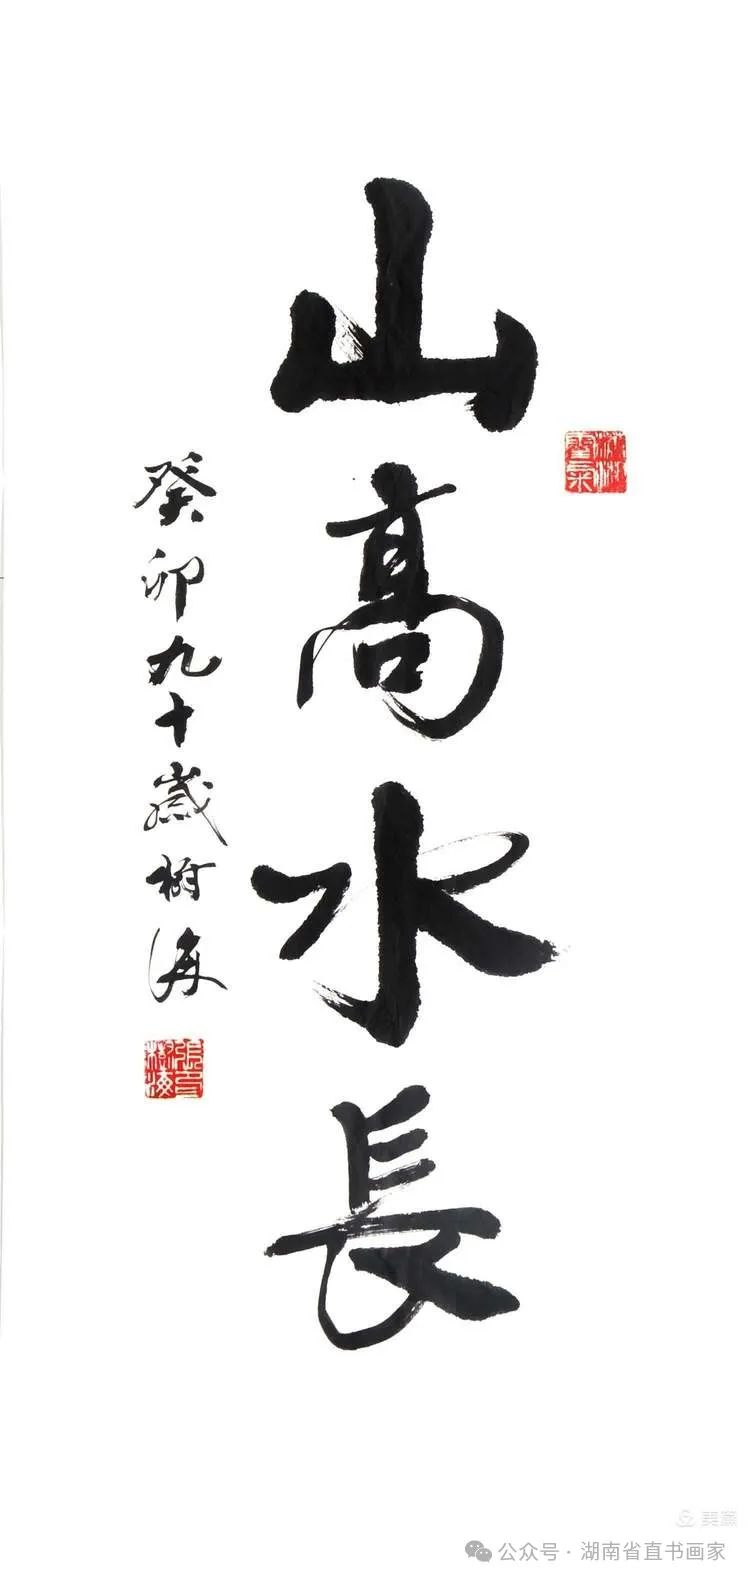 山高水長
癸卯九十歲樹海
美篇
公众号·湖南省直书画家